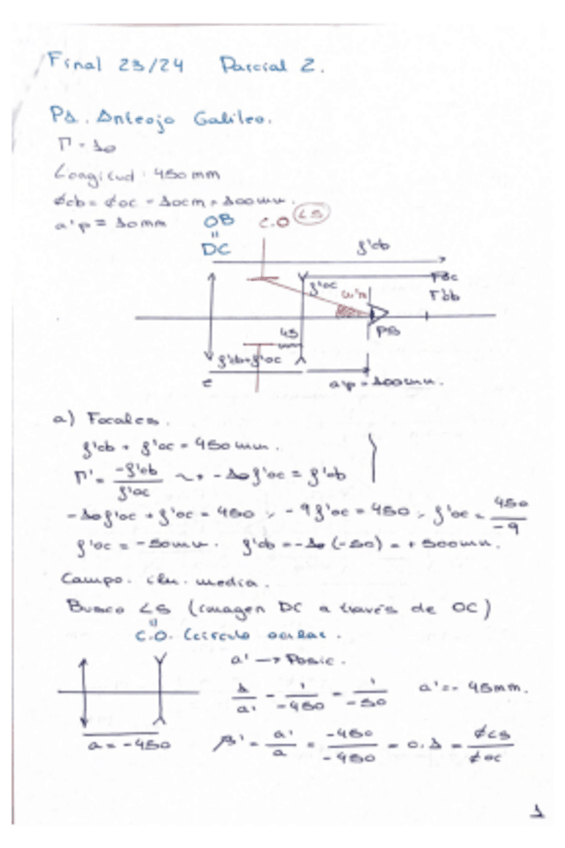 Final 23/24 Parcial 2.
P1. Anteojo Galileo.
Γ = 10
Longitud: 450 mm
ϕob = ϕoc = 10cm = 100mm.
a'p = 10mm
OB
C.O
LS
"
DC
f'ob
f'oc
Foc
F'ob
w'm
PS
45
f'ob+f'oc
e
a'p = 100mm.
a) Focales.
f'ob + f'oc = 450 mm.
Γ' = -f'ob / f'oc ~→ -10 f'oc = f'ob
-10f'oc + f'oc = 450 → -9f'oc = 450 → f'oc = 450 / -9
f'oc = -50mm. f'ob = -10 (-50) = +500mm.
Campo. ilu. media.
Busco LS (imagen DC a través de OC)
"
C.O. (círculo ocular.
a' → Posic.
1/a' - 1/-450 = 1/-50 a' = -45mm.
a = -450
β' = a'/a = -450/-450 = 0.1 = ϕLS/ϕoc
1